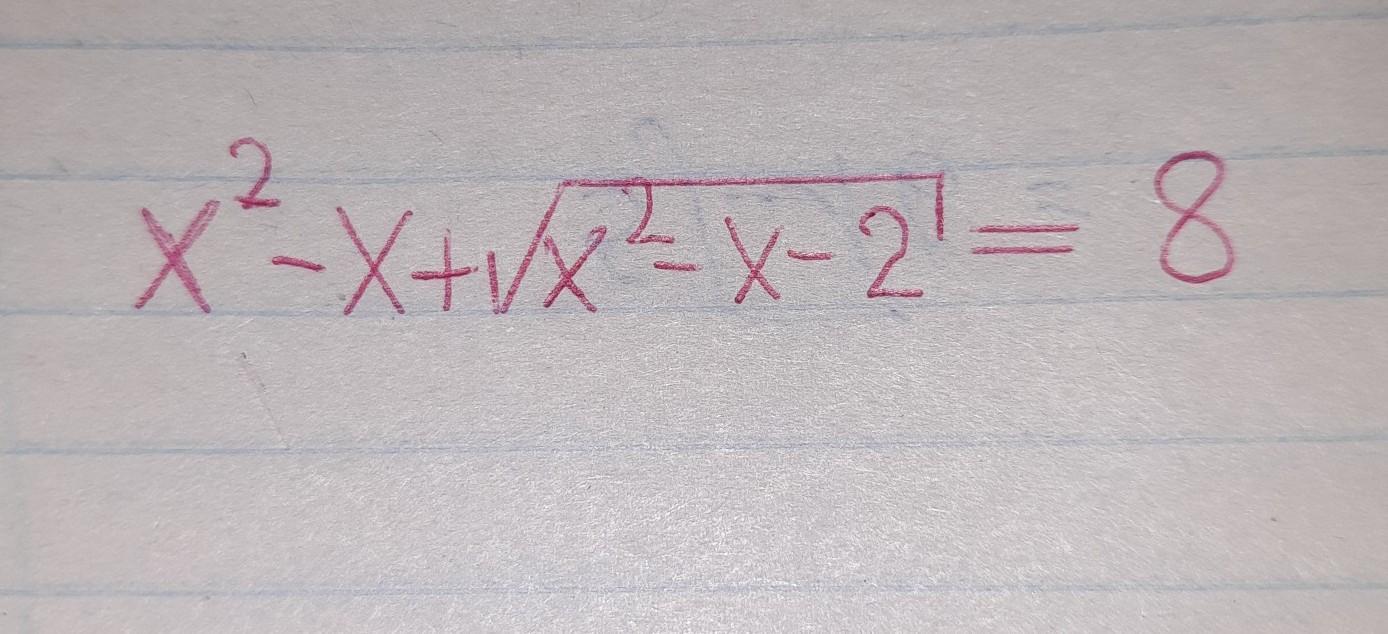 x² - x + √(x² - x - 2) = 8